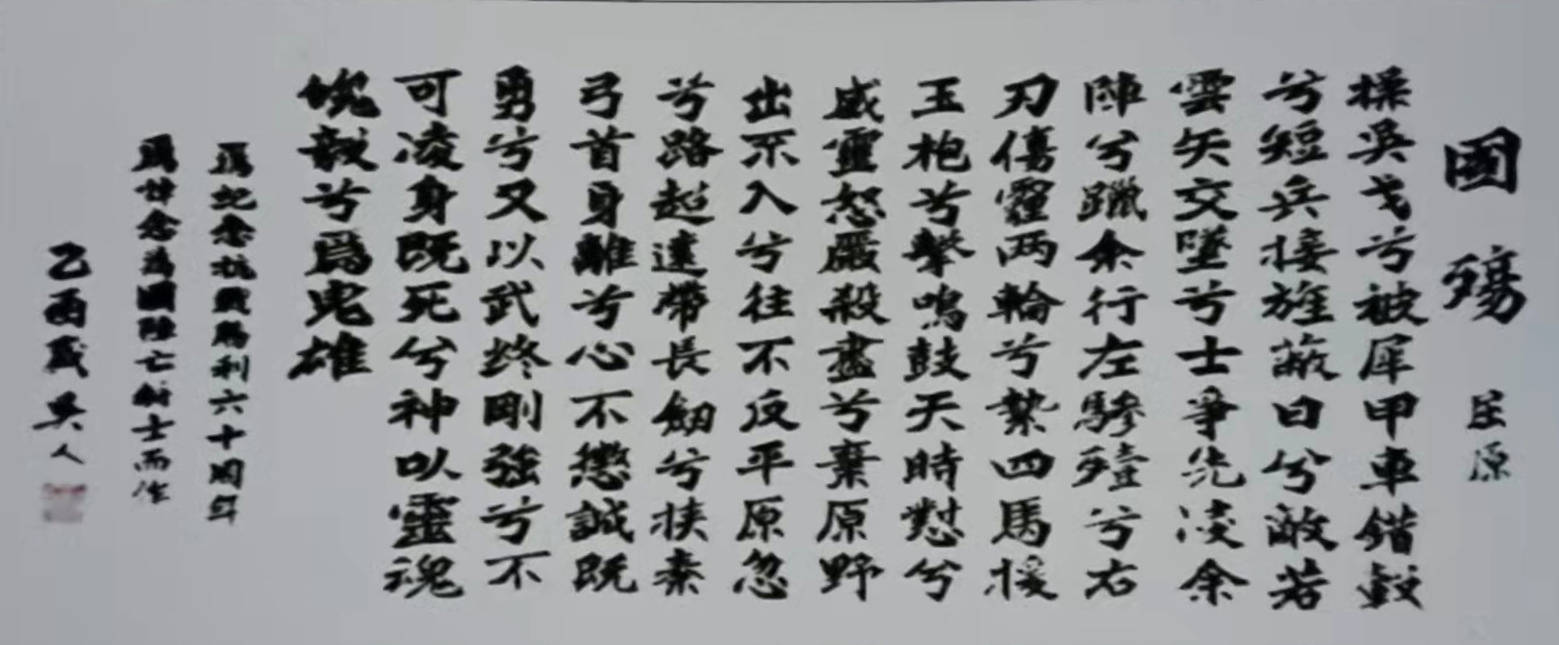 國殤 屈原
操吳戈兮被犀甲車錯轂
兮短兵接旌蔽日兮敵若
雲矢交墜兮士爭先凌余
陣兮躐余行左驂殪兮右
刃傷霾两輪兮縶四馬援
玉枹兮擊鳴鼓天時懟兮
威靈怒嚴殺盡兮棄原野
出不入兮往不反平原忽
兮路超遠帶長劍兮挾秦
弓首身離兮心不懲誠既
勇兮又以武终剛強兮不
可凌身既死兮神以靈魂
魄毅兮爲鬼雄
爲紀念抗戰勝利六十周年
爲悼念為國陣亡將士而作
乙酉歲吳人